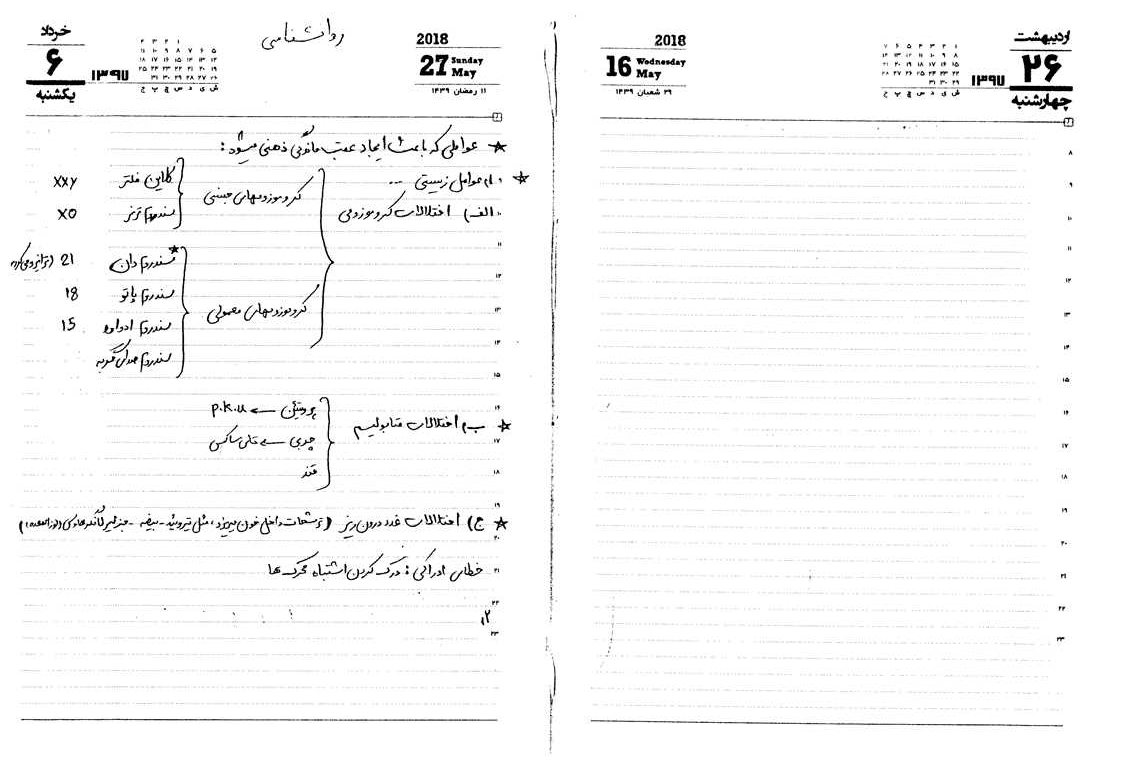 اردیبهشت
۲۶
چهارشنبه
۱۳۹۷
2018
16 Wednesday May
۲۹ شعبان ۱۴۳۹
ش ی د س چ پ ج
۸
۹
۱۰
۱۱
۱۲
۱۳
۱۴
۱۵
۱۶
۱۷
۱۸
۱۹
۲۰
۲۱
۲۲
۲۳
خرداد
۶
یکشنبه
۱۳۹۷
ش ی د س چ پ ج
روانشناسی
2018
27 Sunday May
۱۱ رمضان ۱۴۳۹
★ عواملی که باعث ایجاد عقب ماندگی ذهنی میشود:
★ ۱) عوامل زیستی ...
الف) اختلالات کروموزومی
کروموزومهای جنسی
کلاین فلتر XXY
سندروم ترنر XO
کروموزومهای معمولی
★ سندروم دان 21
سندروم پاتو 18
سندروم ادوارد 15
سندروم صدای گربه
★ ب) اختلالات متابولیسم
پروتئین ← p.k.u
چربی ← تای ساکس
قند
★ ج) اختلالات غدد درون ریز (ترشحات داخل خون میریزد، مثل تیروئید - بیضه -
خطای ادراکی: درک کردن اشتباه محرک ها
۲)